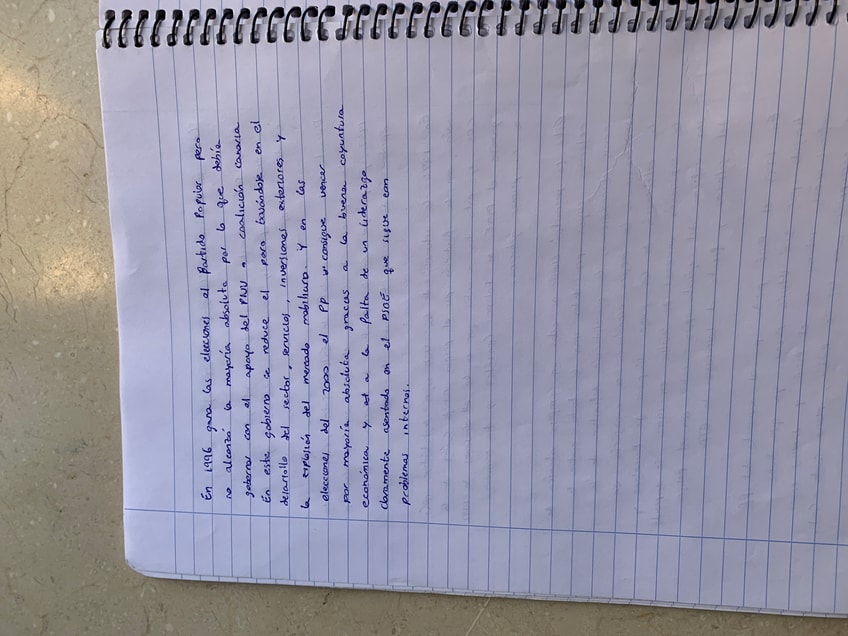 En 1996 gana las elecciones el Partido Popular pero
no alcanzó la mayoría absoluta por lo que debía
gobernar con el apoyo del PNV o coalición canaria
En este gobierno se reduce el paro basándose en el
desarrollo del sector, servicios, inversiones exteriores y
la explosión del mercado mobiliario y en las
elecciones del 2000 el PP consigue vencer
por mayoría absoluta gracias a la buena coyuntura
económica y a la falta de un liderazgo
claramente asentado en el PSOE que sigue con
problemas internos.